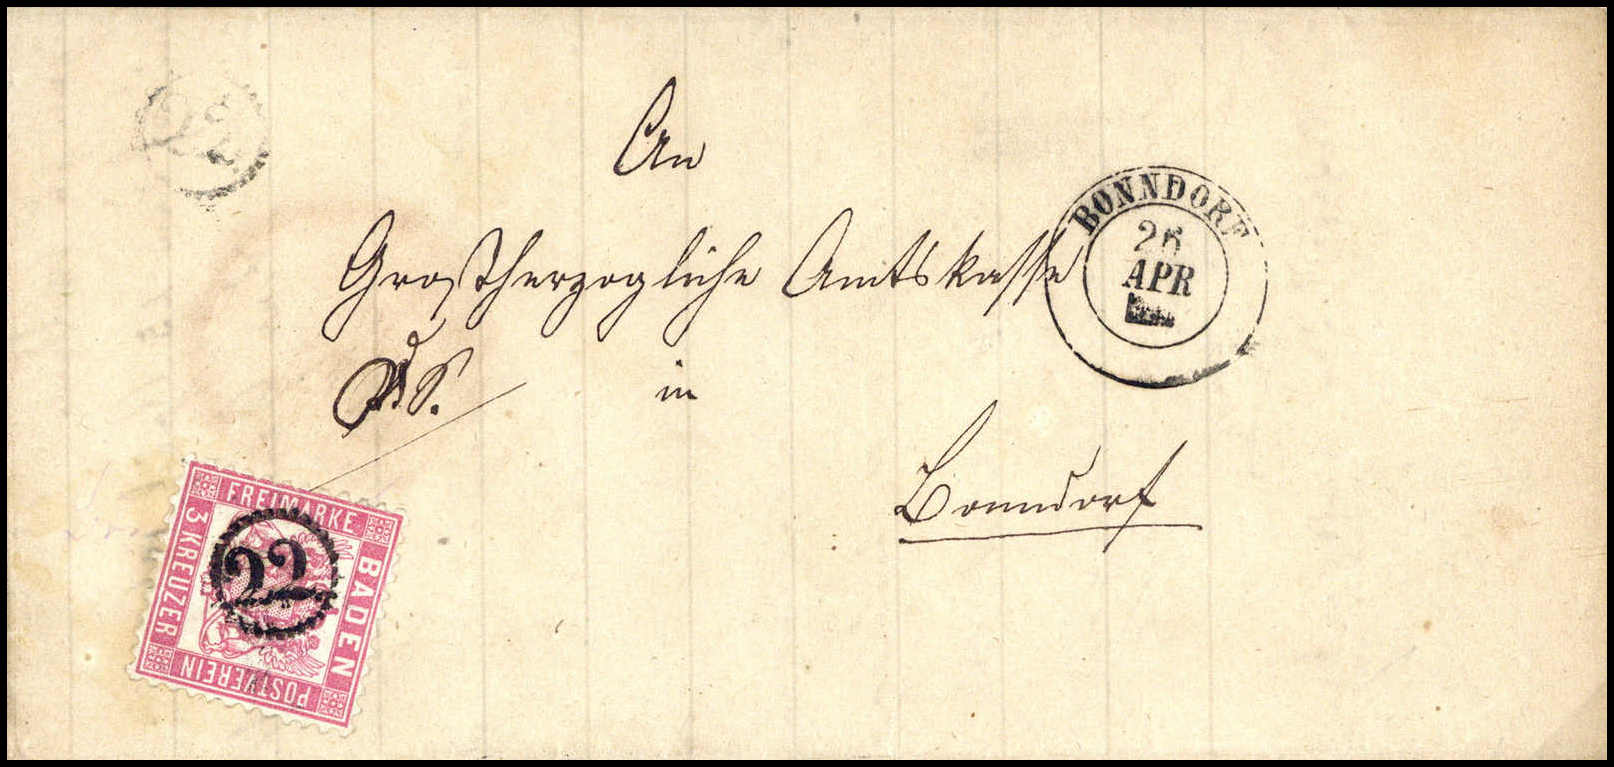 22
An
BONNDORF
26
APR
Großherzogliche Amtskasse
D. S. in
Bonndorf
FREIMARKE
BADEN
POSTVEREIN
3 KREUZER
22